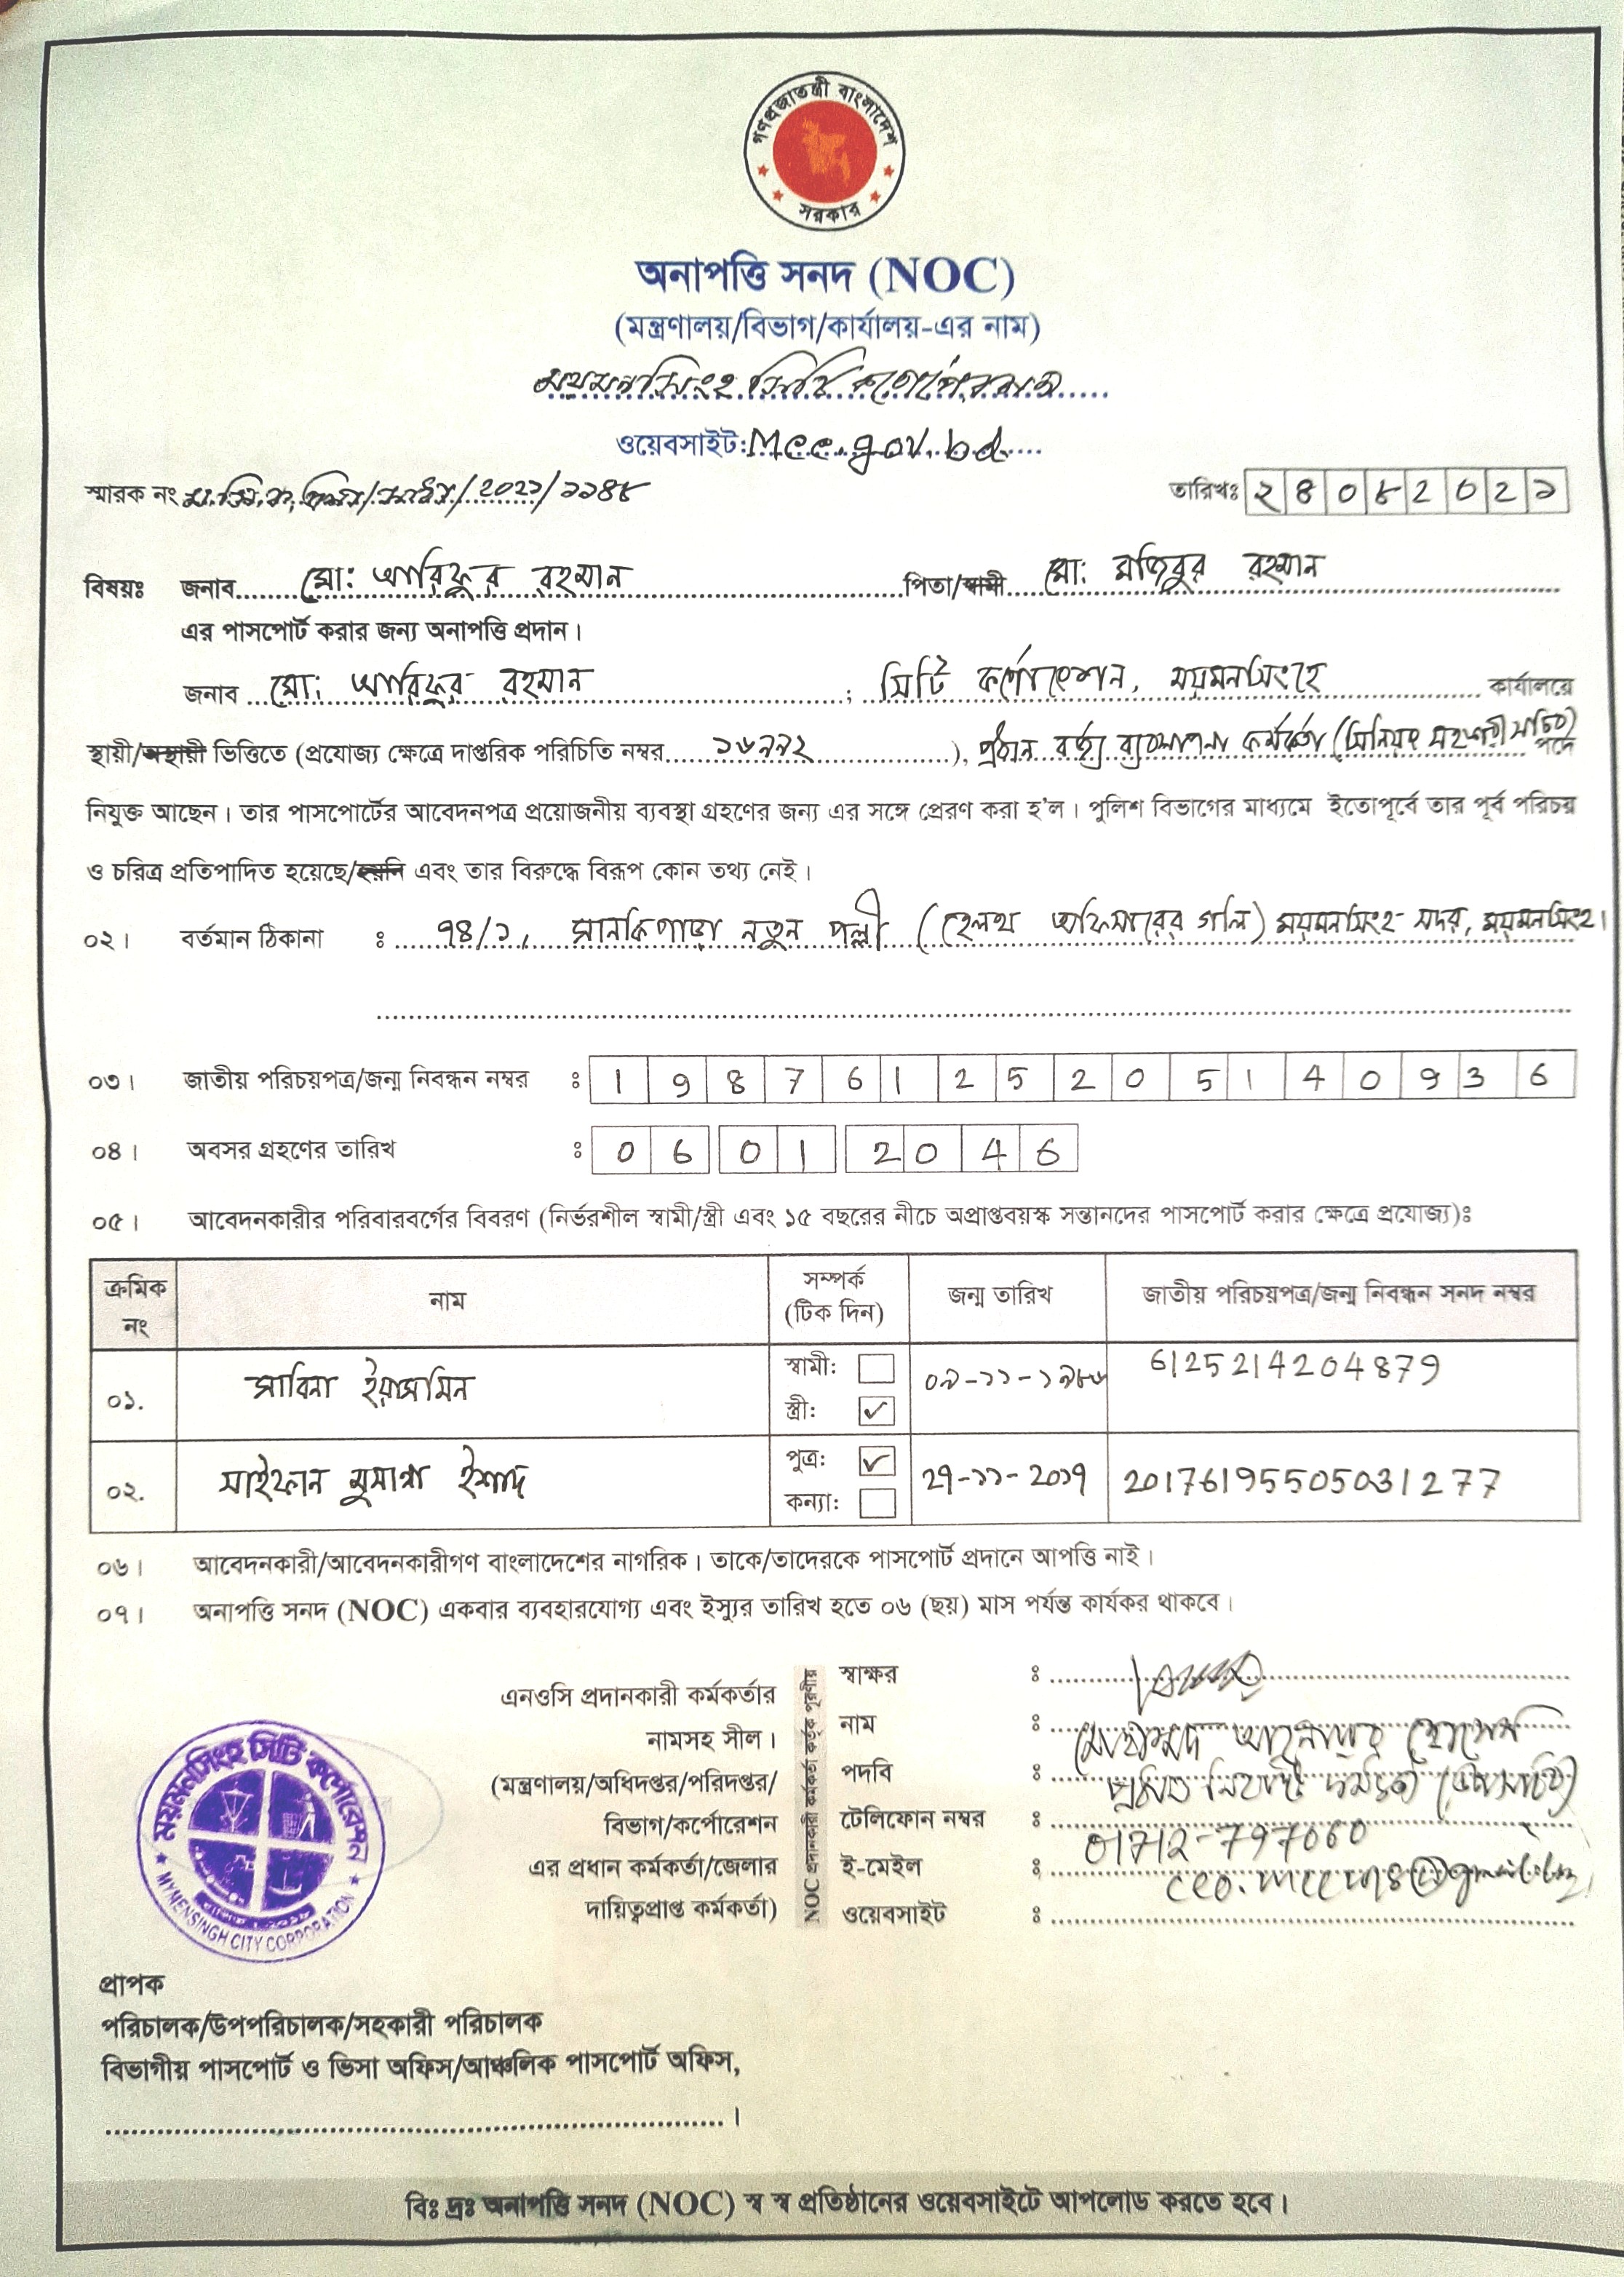 গণপ্রজাতন্ত্রী বাংলাদেশ
সরকার
অনাপত্তি সনদ (NOC)
(মন্ত্রণালয়/বিভাগ/কার্যালয়-এর নাম)
ময়মনসিংহ সিটি কর্পোরেশন
ওয়েবসাইট: Mcc.gov.bd
স্মারক নং ম.সি.ক./ /২০২১/১১৪৮
তারিখঃ ২ ৪ ০ ৮ ২ ০ ২ ১
বিষয়ঃ জনাব মো: আরিফুর রহমান পিতা/স্বামী মো: মজিবুর রহমান
এর পাসপোর্ট করার জন্য অনাপত্তি প্রদান।
জনাব মো: আরিফুর রহমান ; সিটি কর্পোরেশন, ময়মনসিংহ কার্যালয়ে
স্থায়ী/অস্থায়ী ভিত্তিতে (প্রযোজ্য ক্ষেত্রে দাপ্তরিক পরিচিতি নম্বর ১৬৭৭২ ), প্রধান বর্জ্য ব্যবস্থাপনা কর্মকর্তা (সিনিয়র সহকারী সচিব) পদে
নিযুক্ত আছেন। তার পাসপোর্টের আবেদনপত্র প্রয়োজনীয় ব্যবস্থা গ্রহণের জন্য এর সঙ্গে প্রেরণ করা হ'ল। পুলিশ বিভাগের মাধ্যমে ইতোপূর্বে তার পূর্ব পরিচয়
ও চরিত্র প্রতিপাদিত হয়েছে/হয়নি এবং তার বিরুদ্ধে বিরূপ কোন তথ্য নেই।
০২। বর্তমান ঠিকানা ঃ ৭৪/১, সানকিপাড়া নতুন পল্লী (হেলথ অফিসারের গলি) ময়মনসিংহ সদর, ময়মনসিংহ।
০৩। জাতীয় পরিচয়পত্র/জন্ম নিবন্ধন নম্বর ঃ 1 9 8 7 6 1 2 5 2 0 5 1 4 0 9 3 6
০৪। অবসর গ্রহণের তারিখ ঃ 0 6 0 1 2 0 4 6
০৫। আবেদনকারীর পরিবারবর্গের বিবরণ (নির্ভরশীল স্বামী/স্ত্রী এবং ১৫ বছরের নীচে অপ্রাপ্তবয়স্ক সন্তানদের পাসপোর্ট করার ক্ষেত্রে প্রযোজ্য)ঃ
ক্রমিক নং নাম সম্পর্ক (টিক দিন) জন্ম তারিখ জাতীয় পরিচয়পত্র/জন্ম নিবন্ধন সনদ নম্বর
০১. সাবিনা ইয়াসমিন স্বামী: ☐ ০৯-১১-১৯৮৬ 6125214204879
স্ত্রী: ✓
০২. সাইফান মুসান্না ইশাদ পুত্র: ✓ ২৭-১১-২০১৭ 20176195505031277
কন্যা: ☐
০৬। আবেদনকারী/আবেদনকারীগণ বাংলাদেশের নাগরিক। তাকে/তাদেরকে পাসপোর্ট প্রদানে আপত্তি নাই।
০৭। অনাপত্তি সনদ (NOC) একবার ব্যবহারযোগ্য এবং ইস্যুর তারিখ হতে ০৬ (ছয়) মাস পর্যন্ত কার্যকর থাকবে।
এনওসি প্রদানকারী কর্মকর্তার
নামসহ সীল।
(মন্ত্রণালয়/অধিদপ্তর/পরিদপ্তর/
বিভাগ/কর্পোরেশন
এর প্রধান কর্মকর্তা/জেলার
দায়িত্বপ্রাপ্ত কর্মকর্তা)
NOC প্রদানকারী কর্মকর্তা কর্তৃক পূরণীয়
স্বাক্ষর ঃ
নাম ঃ মোহাম্মদ আনোয়ার হোসেন
পদবি ঃ প্রধান নির্বাহী কর্মকর্তা (উপসচিব)
টেলিফোন নম্বর ঃ 01712-797060
ই-মেইল ঃ
ওয়েবসাইট ঃ
ময়মনসিংহ সিটি কর্পোরেশন
MYMENSINGH CITY CORPORATION
প্রাপক
পরিচালক/উপপরিচালক/সহকারী পরিচালক
বিভাগীয় পাসপোর্ট ও ভিসা অফিস/আঞ্চলিক পাসপোর্ট অফিস,
।
বিঃ দ্রঃ অনাপত্তি সনদ (NOC) স্ব স্ব প্রতিষ্ঠানের ওয়েবসাইটে আপলোড করতে হবে।